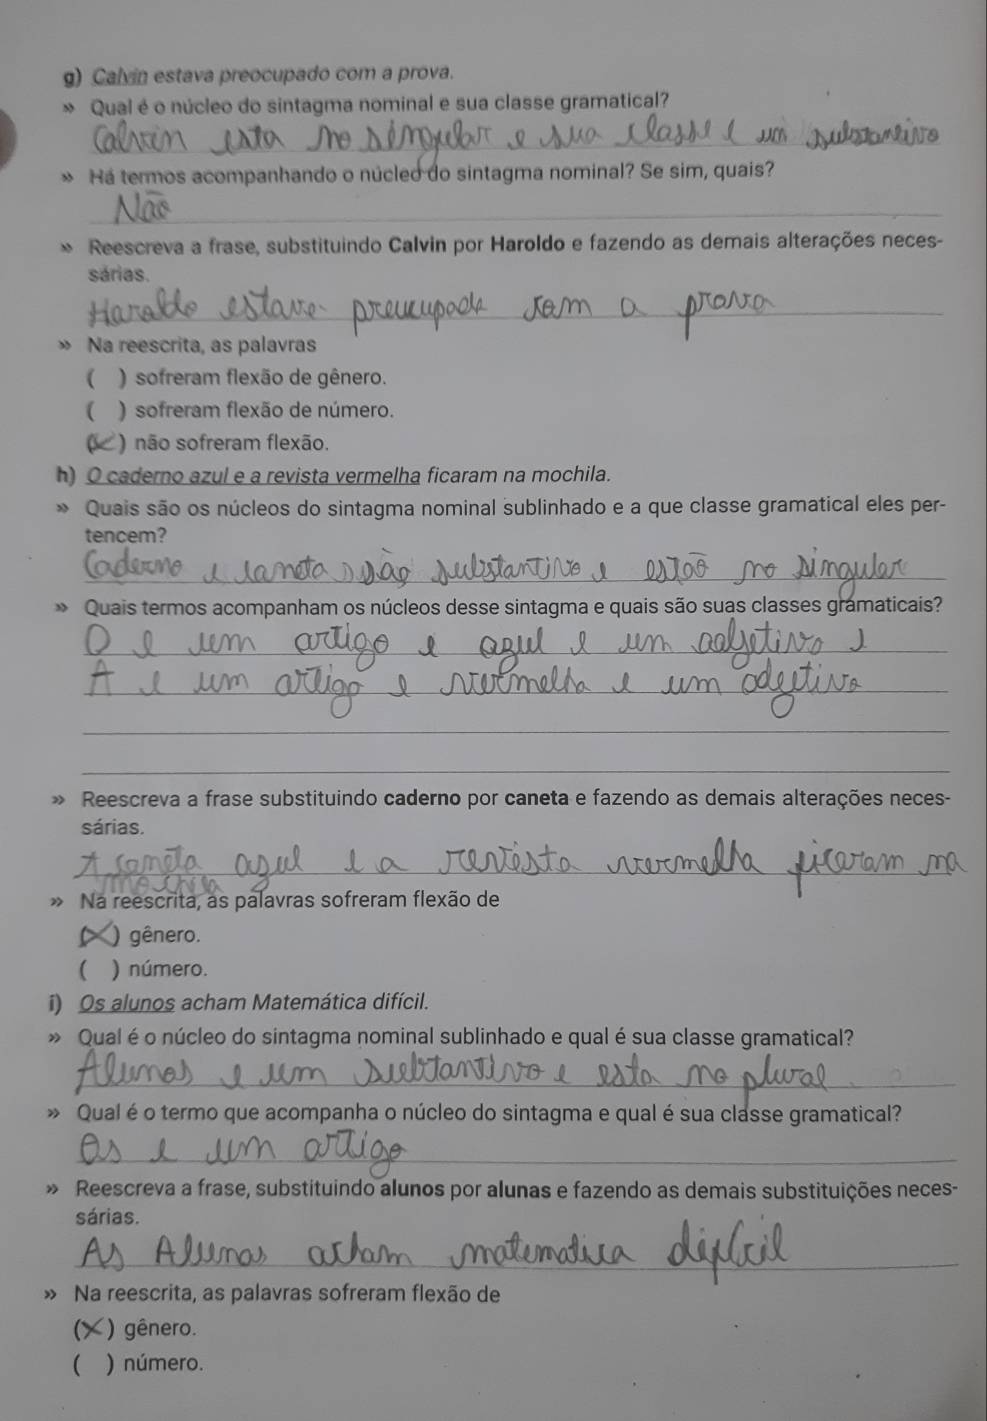 g) Calvin estava preocupado com a prova.
» Qual é o núcleo do sintagma nominal e sua classe gramatical?
Calvin esta no singular e sua classe e um substantivo
» Há termos acompanhando o núcleo do sintagma nominal? Se sim, quais?
Não
» Reescreva a frase, substituindo Calvin por Haroldo e fazendo as demais alterações neces-
sárias.
Haraldo estava preucupado com a prova
» Na reescrita, as palavras
( ) sofreram flexão de gênero.
( ) sofreram flexão de número.
(X) não sofreram flexão.
h) O caderno azul e a revista vermelha ficaram na mochila.
» Quais são os núcleos do sintagma nominal sublinhado e a que classe gramatical eles per-
tencem?
Caderno e caneta são substantivo e estão no singular
» Quais termos acompanham os núcleos desse sintagma e quais são suas classes gramaticais?
O e um artigo e azul e um adjetivo e
A e um artigo e vermelha e um adjetivo
» Reescreva a frase substituindo caderno por caneta e fazendo as demais alterações neces-
sárias.
A caneta azul e a revista vermelha ficaram na
mochila
» Na reescrita, as palavras sofreram flexão de
(X) gênero.
( ) número.
i) Os alunos acham Matemática difícil.
» Qual é o núcleo do sintagma nominal sublinhado e qual é sua classe gramatical?
Alunos e um substantivo e esta no plural
» Qual é o termo que acompanha o núcleo do sintagma e qual é sua classe gramatical?
Os e um artigo
» Reescreva a frase, substituindo alunos por alunas e fazendo as demais substituições neces-
sárias.
As Alunas acham matematica dificil
» Na reescrita, as palavras sofreram flexão de
(X) gênero.
( ) número.